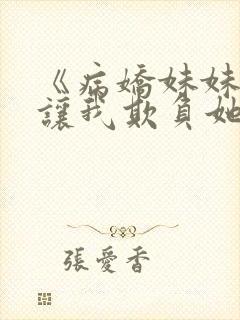 《病嬌妹妹
讓我欺負她
張愛香